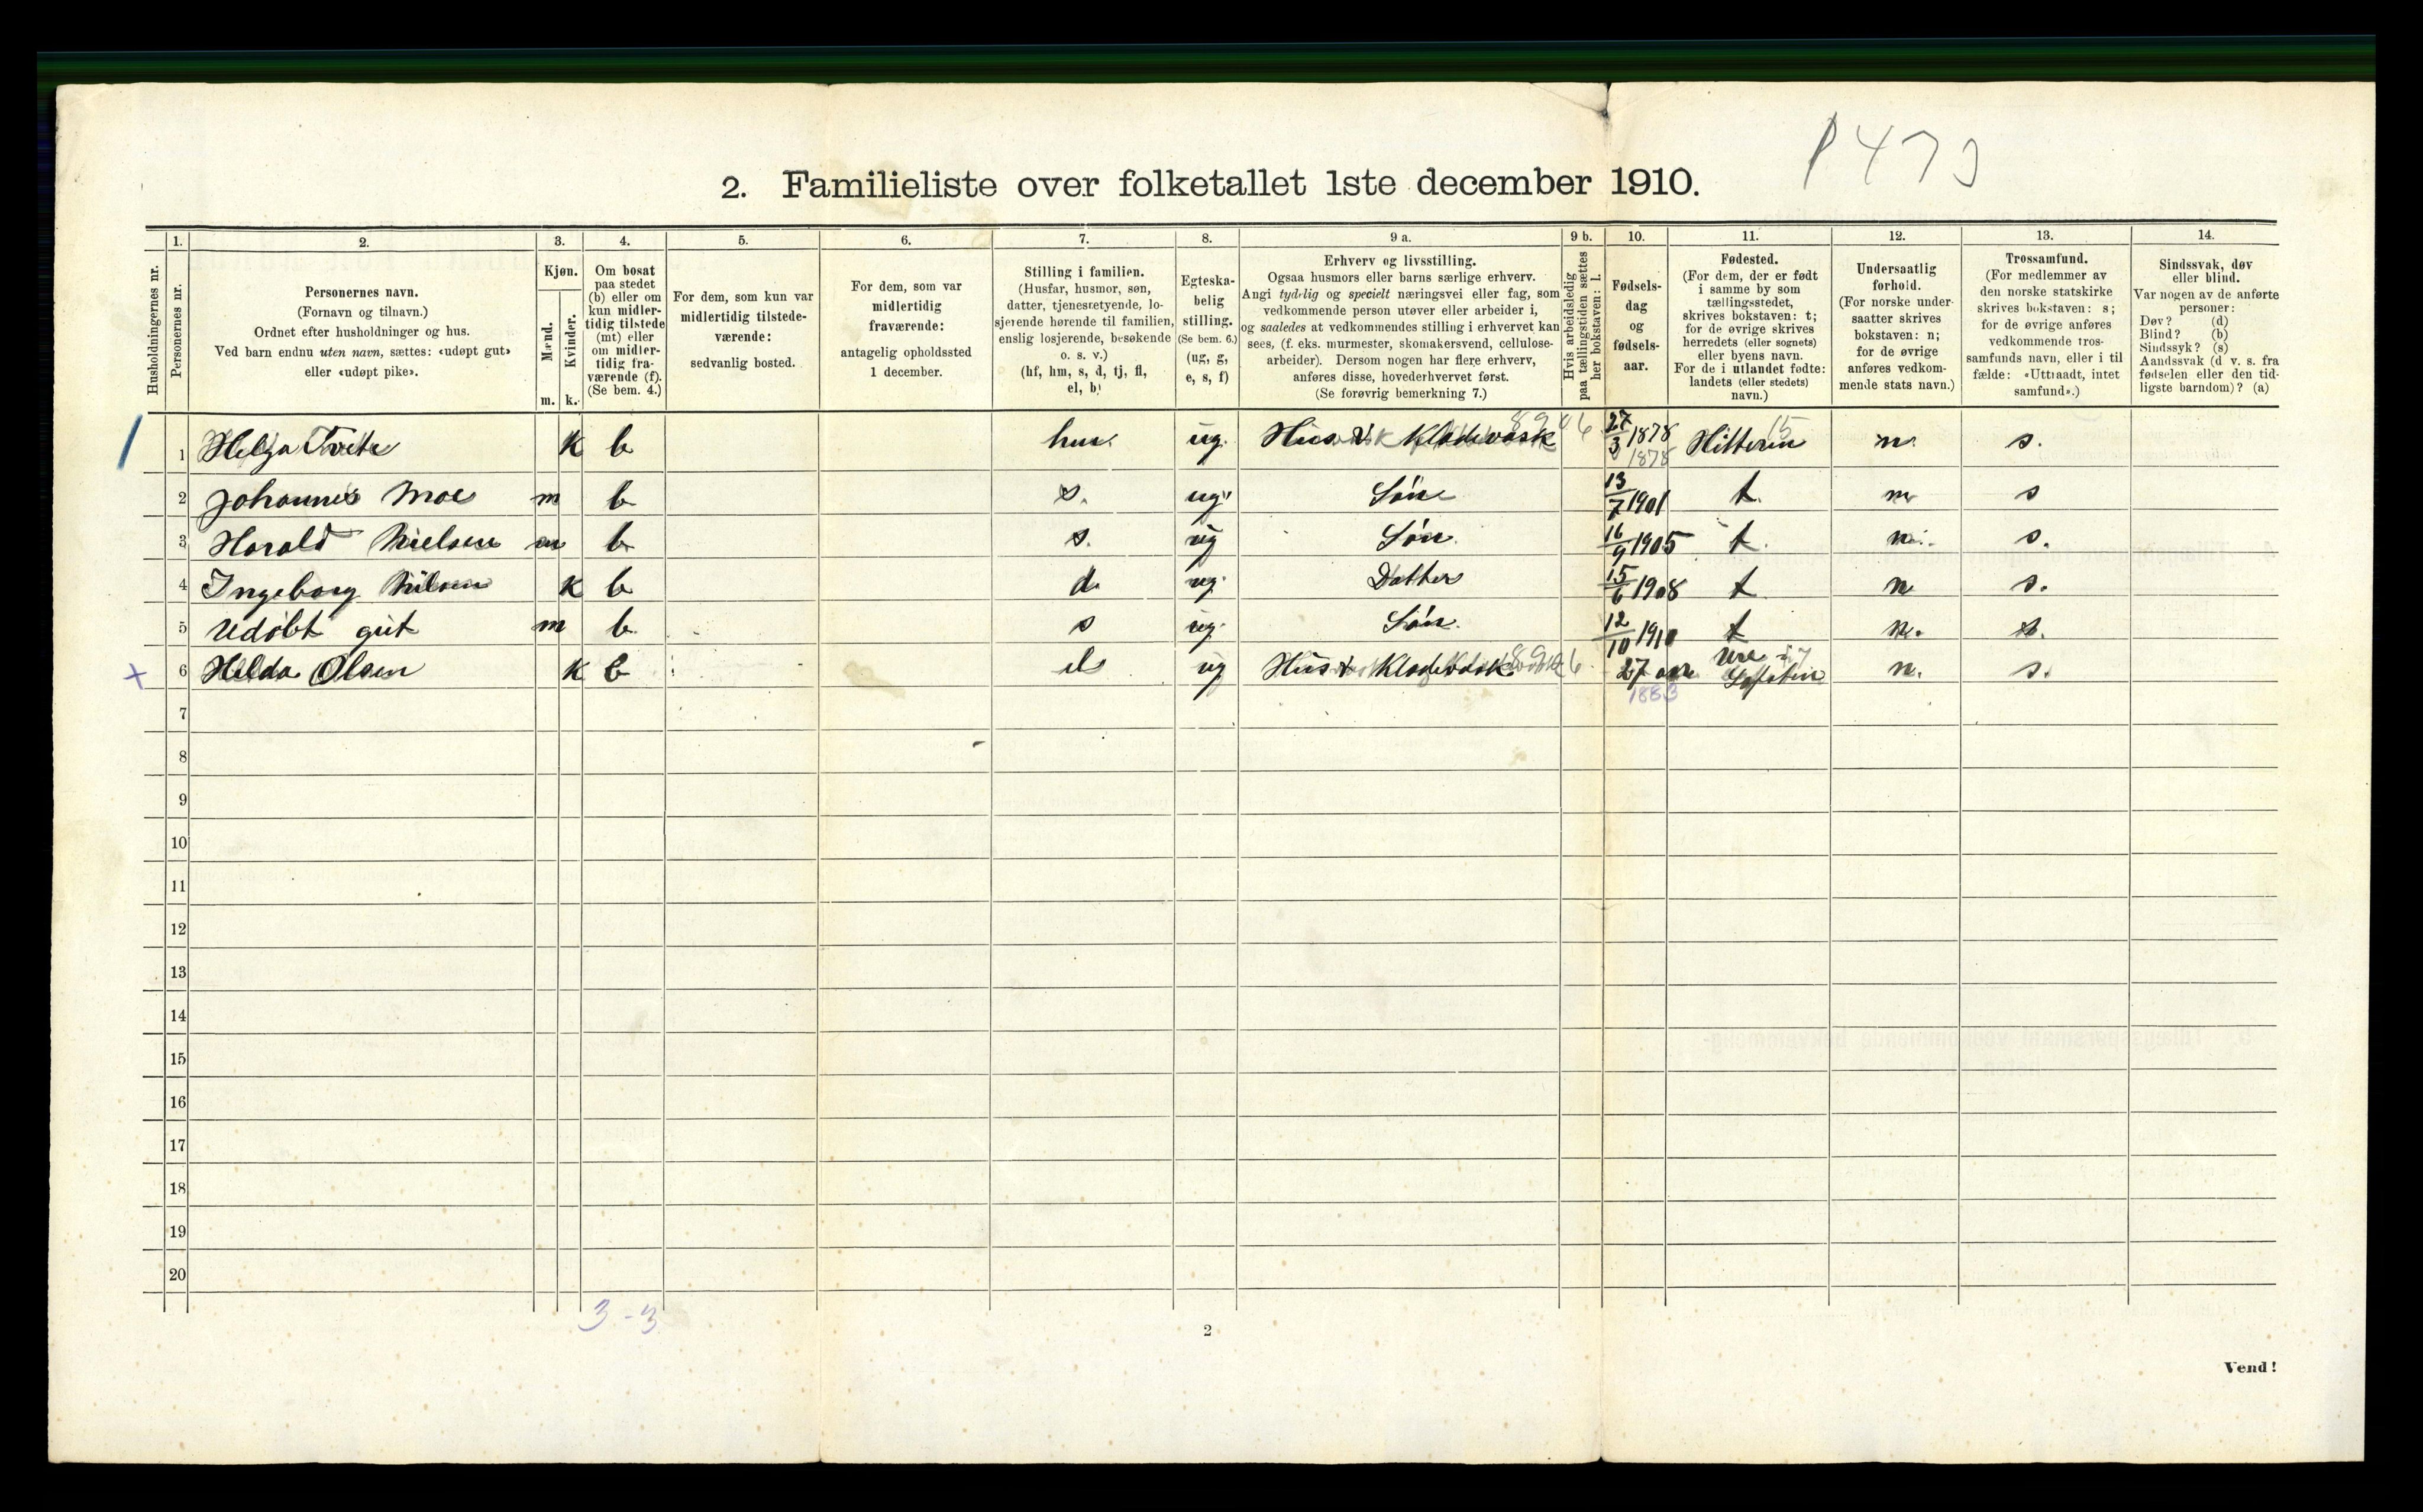 P 473
2. Familieliste over folketallet 1ste december 1910.
Husholdningernes nr.
1. Personernes nr.
2. Personernes navn. (Fornavn og tilnavn.) Ordnet efter husholdninger og hus. Ved barn endnu uten navn, sættes: «udøpt gut» eller «udøpt pike».
3. Kjøn. Mænd. m. Kvinder. k.
4. Om bosat paa stedet (b) eller om kun midlertidig tilstede (mt) eller om midlertidig fraværende (f). (Se bem. 4.)
5. For dem, som kun var midlertidig tilstedeværende: sedvanlig bosted.
6. For dem, som var midlertidig fraværende: antagelig opholdssted 1 december.
7. Stilling i familien. (Husfar, husmor, søn, datter, tjenestetyende, losjerende hørende til familien, enslig losjerende, besøkende o. s. v.) (hf, hm, s, d, tj, fl, el, b)
8. Egteskabelig stilling. (Se bem. 6.) (ug, g, e, s, f)
9 a. Erhverv og livsstilling. Ogsaa husmors eller barns særlige erhverv. Angi tydelig og specielt næringsvei eller fag, som vedkommende person utøver eller arbeider i, og saaledes at vedkommendes stilling i erhvervet kan sees, (f. eks. murmester, skomakersvend, cellulosearbeider). Dersom nogen har flere erhverv, anføres disse, hovederhvervet først. (Se forøvrig bemerkning 7.)
9 b. Hvis arbeidsledig paa tællingstiden sættes her bokstaven: l.
10. Fødselsdag og fødselsaar.
11. Fødested. (For dem, der er født i samme by som tællingsstedet, skrives bokstaven: t; for de øvrige skrives herredets (eller sognets) eller byens navn. For de i utlandet fødte: landets (eller stedets) navn.)
12. Undersaatlig forhold. (For norske undersaatter skrives bokstaven: n; for de øvrige anføres vedkommende stats navn.)
13. Trossamfund. (For medlemmer av den norske statskirke skrives bokstaven: s; for de øvrige anføres vedkommende trossamfunds navn, eller i tilfælde: «Uttraadt, intet samfund».)
14. Sindssvak, døv eller blind. Var nogen av de anførte personer: Døv? (d) Blind? (b) Sindssyk? (s) Aandssvak (d v. s. fra fødselen eller den tidligste barndom)? (a)
1 Helga Tvete k b hm. ug. Hus & Kladevask 27/3 1878 1878 Hitteren 15 n. s.
2 Johannes Moe m b s. ug. Søn 13/7 1901 t. n s
3 Harald Nielsen m b s. ug Søn. 16/9 1905 t. n. s.
4 Ingeborg Nilsen k b d. ug. Datter 15/6 1908 t n s.
5 Udöbt gut m b. s ug. Søn. 12/10 1910 t n. s.
6 Helda Olsen k b el ug Hus & Kladevask 27 aar 1883 Lofoten n. s.
7
8
9
10
11
12
13
14
15
16
17
18
19
20
3 - 3
2
Vend!